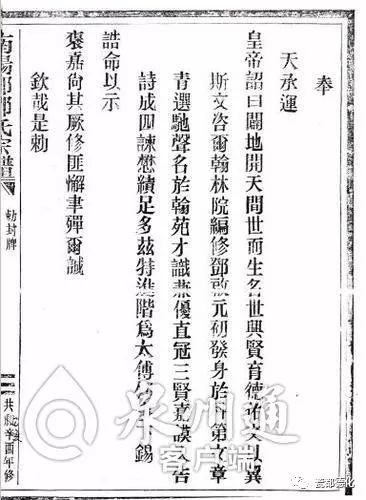 奉
天承運
皇帝詔曰闢地開天間世而生名世興賢育德祐文以翼
斯文咨爾翰林院編修鄧啟元初發身於科第文章
青選馳聲名於翰苑才識兼優直冠三賢嘉謨入告
詩成四諫懋績足多茲特進階爲太傅錫
誥命以示
褒嘉尚其厥修匪懈聿殫爾誠
欽哉是勅
南陽郡鄧氏宗譜
勅封牌
共和辛酉年修
泉州通
客户端
瓷都德化